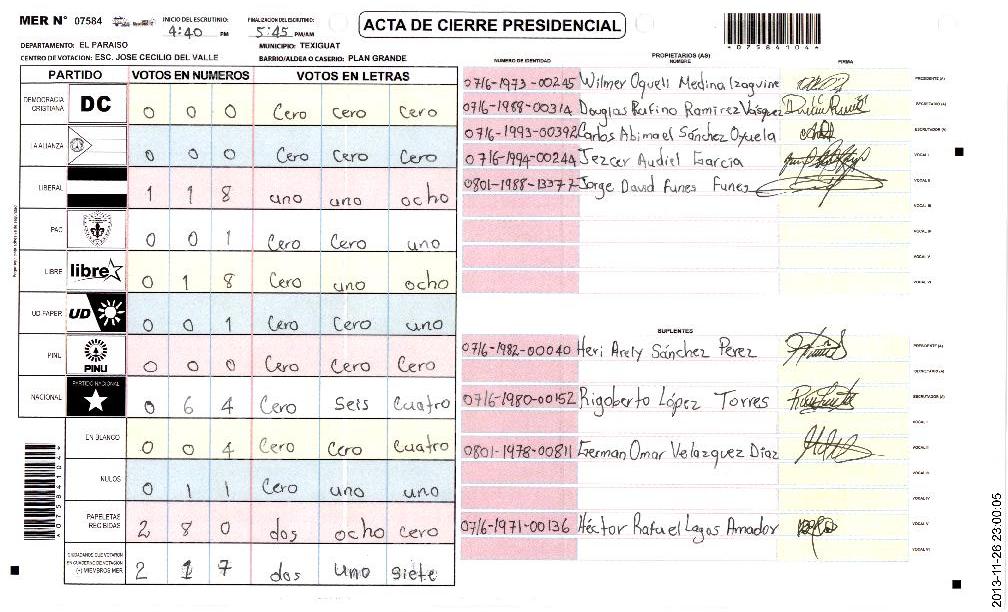 MER N° 07584
INICIO DEL ESCRUTINIO:
4:40 PM
FINALIZACION DEL ESCRUTINIO:
5:45 PM/AM
ACTA DE CIERRE PRESIDENCIAL
*07584104*
DEPARTAMENTO: EL PARAISO
MUNICIPIO: TEXIGUAT
CENTRO DE VOTACION: ESC. JOSE CECILIO DEL VALLE
BARRIO/ALDEA O CASERIO: PLAN GRANDE
PARTIDO VOTOS EN NUMEROS VOTOS EN LETRAS
DEMOCRACIA CRISTIANA DC 0 0 0 Cero Cero Cero
LA ALIANZA 0 0 0 Cero Cero Cero
LIBERAL 1 1 8 uno uno ocho
PAC 0 0 1 Cero Cero uno
LIBRE libre 0 1 8 Cero uno ocho
UD FAPER UD 0 0 1 Cero Cero uno
PINU PINU 0 0 0 Cero Cero Cero
NACIONAL PARTIDO NACIONAL 0 6 4 Cero seis cuatro
EN BLANCO 0 0 4 Cero Cero Cuatro
NULOS 0 1 1 Cero uno uno
PAPELETAS RECIBIDAS 2 8 0 dos ocho cero
CIUDADANOS QUE VOTARON EN CUADERNO DE VOTACION (+) MIEMBROS MER 2 1 7 dos uno siete
*07584104*
PROPIETARIOS (AS)
NUMERO DE IDENTIDAD NOMBRE FIRMA
0716-1973-00245 Wilmer Oqueli Medina Izaguirre PRESIDENTE (A)
0716-1988-00314 Douglas Rufino Ramirez Vasquez SECRETARIO (A)
0716-1993-00392 Carlos Abimael Sánchez Oyuela ESCRUTADOR (A)
0716-1994-00244 Jezcer Audiel Garcia VOCAL I
0801-1988-13377 Jorge David Funes Funes VOCAL II
VOCAL III
VOCAL IV
VOCAL V
VOCAL VI
SUPLENTES
0716-1982-00040 Heri Arely Sánchez Perez PRESIDENTE (A)
SECRETARIO (A)
0716-1980-00152 Rigoberto López Torres ESCRUTADOR (A)
VOCAL I
0801-1978-00811 German Omar Velazquez Diaz VOCAL II
VOCAL III
VOCAL IV
0716-1971-00136 Héctor Rafael Lagos Amador VOCAL V
VOCAL VI
2013-11-26 23:00:05